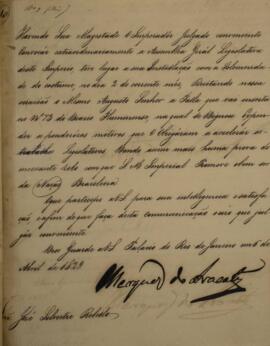 Havendo Sua Magestade O Imperador Julgado conveniente
Convocar extraordinariamente a Assemblea Geral Legislativa
deste Imperio, teve lugar a sua Installação com a Solemnidade
do costume no dia 2 do corrente mez, Recitando nessa
occasião o Mesmo Augusto Senhor a Falla que vai inserta
no Nº 73 do Diario Fluminense, na qual Se Dignou Expender
os ponderosos motivos que O Obrigárão a accelerar os
trabalhos legislativos, Dando assim mais huma prova do
incessante zelo com que S. M. o Imperial Promove o bem
da Nação Brasileira
Que participo a VS. para sua intelligencia e satisfa-
ção, e afim de que faça desta communicação o uso que jul-
gar conveniente.
Deos Guarde a VS. Palacio do Rio de Janeiro em de
Abril de 1829
Marquez do Aracaty
José Silvestre Rebello